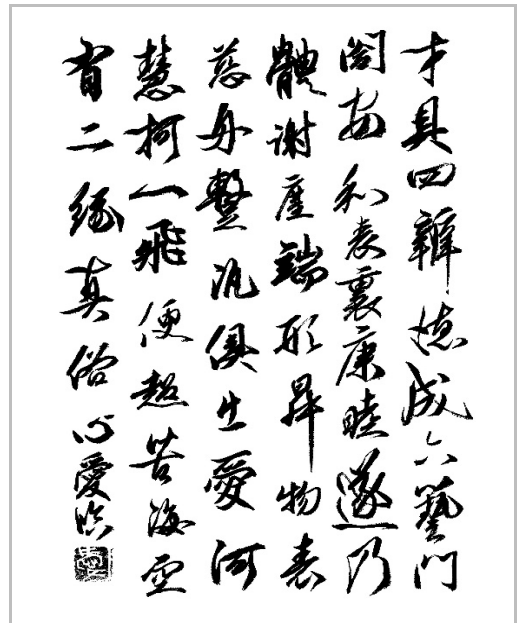 才具四辯德成六藝門
閤安和表裏康睦遂乃
體謝塵端形昇物表
慈舟蹔汎俱出愛河
慧柯一飛便超苦海空
有二緣真俗心愛臨